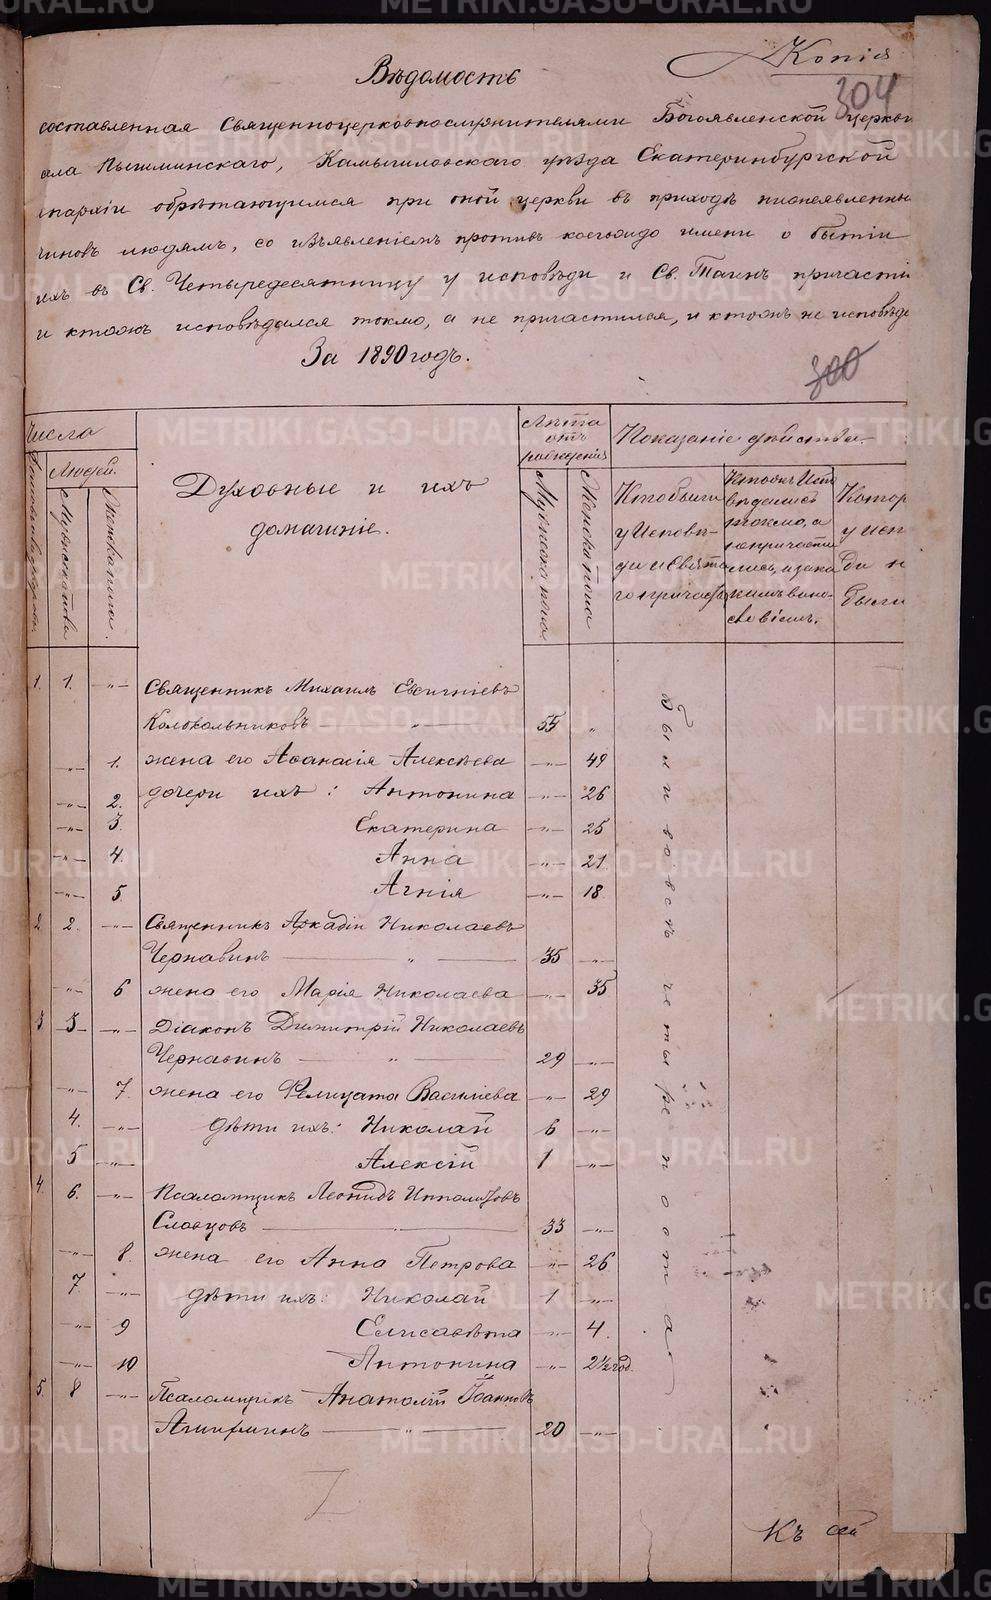 Копія
304
Вѣдомость
составленная Священноцерковнослужителями Богоявленской церкви
села Пышминскаго, Камышловскаго уѣзда Екатеринбургской
епархіи обрѣтающимся при оной церкви въ приходѣ нижеявленны
чиновъ людямъ, со изъявленіемъ противъ коегождо имени о бытіи
ихъ въ Св. Четыредесятницу у исповѣди и Св. Таинъ причасті
и ктожъ исповѣдался токмо, а не причастился, и ктожъ не исповѣда
За 1890 годъ.
300
Числа
Людей.
Мужеска пола
Женска пола.
Духовные и ихъ
домашніе.
Лѣта
отъ
рожденія
Мужеска пола
Женска пола
Показаніе дѣйства.
Кто были
у Исповѣ-
ди и Свята
го причастія
Ктожъ Испо
вѣдались
токмо, а
не причасти
лись, и за ка
кимъ вино-
словіемъ.
Котор
у исп
ди н
были
1. 1. -„- Священникъ Михаилъ Евгеніевъ
Колокольниковъ — „ — 55 „
-„- 1. жена его Аѳанасія Алексѣева -„- 49
-„- 2. дочери ихъ: Антонина -„- 26
-„- 3. Екатерина -„- 25
-„- 4. Анна -„- 21
-„- 5. Агнія -„- 18
2 2. -„- Священникъ Аркадій Николаевъ
Чернавинъ — „ — 35 -„-
-„- 6 жена его Марія Николаева -„- 35
3 3 -„- Діаконъ Димитрій Николаевъ
Чернавинъ — „ — 29 -„-
-„- 7. жена его Фелицата Василіева -„- 29
4. -„- дѣти ихъ: Николай 6 -„-
5 -„- Алексій 1 -„-
4. 6. -„- Псаломщикъ Леонидъ Ипполитовъ
Словцовъ — „ — 33 -„-
-„- 8. жена его Анна Петрова -„- 26
7. -„- дѣти ихъ: Николай 1 -„-
-„- 9 Елисавета -„- 4.
-„- 10 Антонина -„- 2½ год.
5. 8 -„- Псаломщикъ Анатолій Іоанновъ
20 -„-
были во всѣ четыре поста
Къ сей